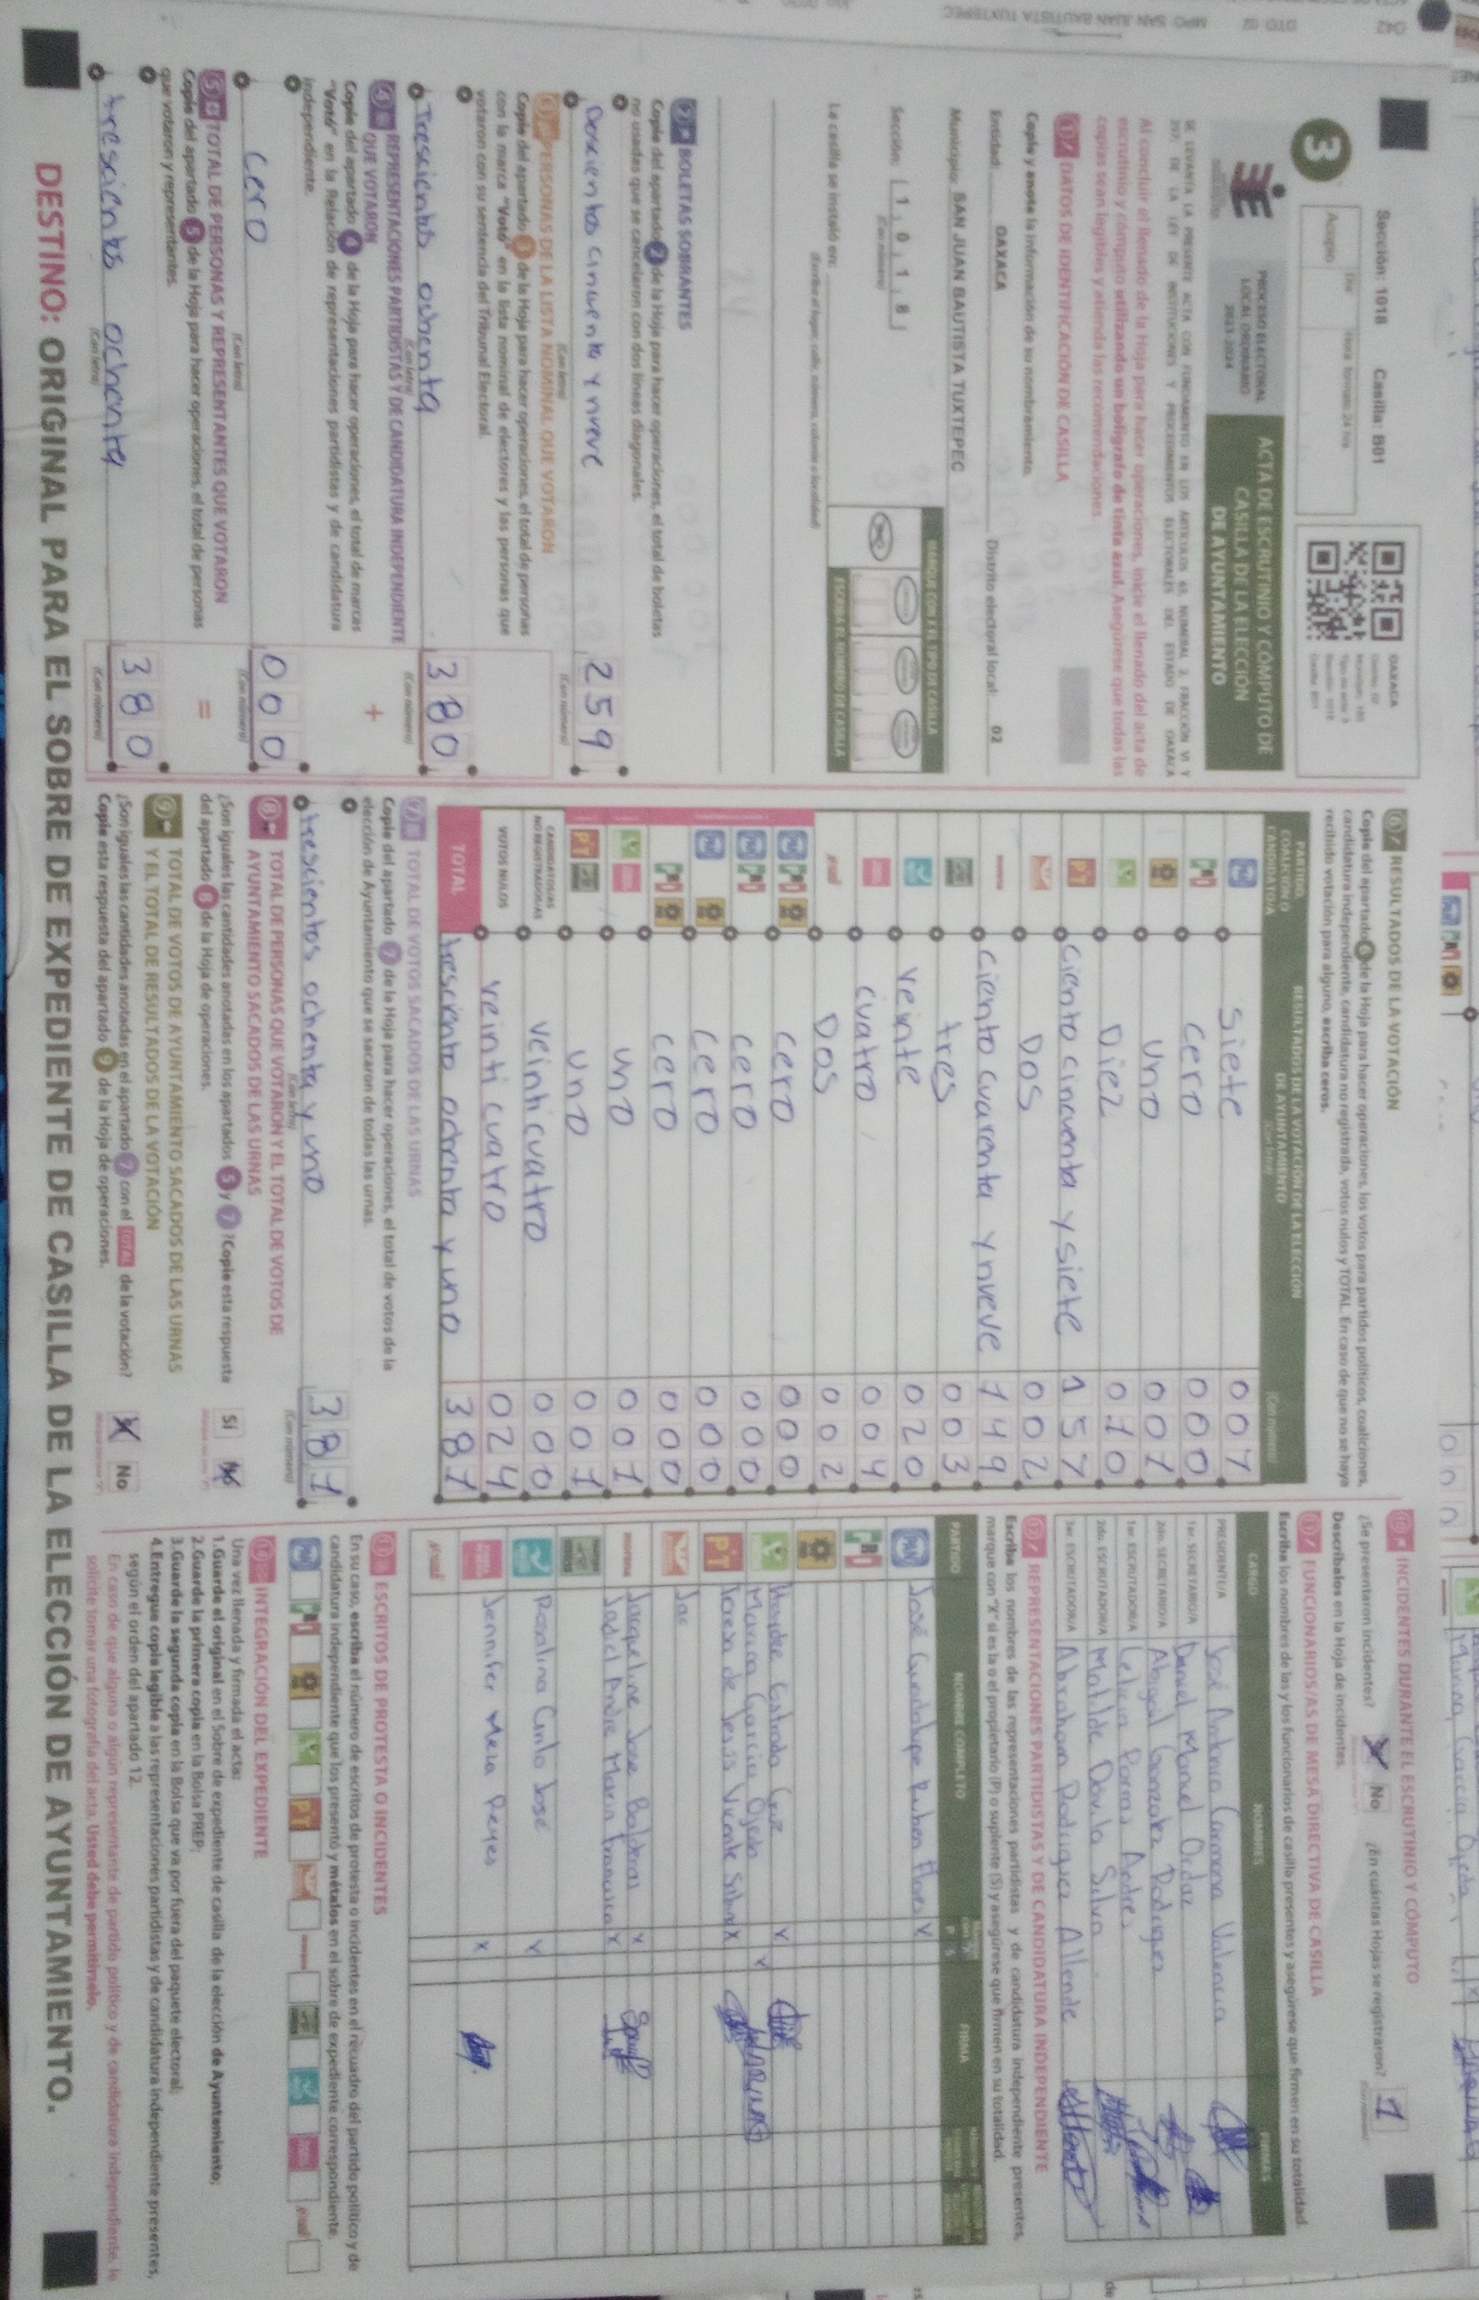 Sección: 1018 Casilla: B01
3
Acopio
Día
Hora formato 24 hrs
PROCESO ELECTORAL
LOCAL ORDINARIO
2023-2024
ACTA DE ESCRUTINIO Y CÓMPUTO DE
CASILLA DE LA ELECCIÓN
DE AYUNTAMIENTO
OAXACA
SE LEVANTA LA PRESENTE ACTA CON FUNDAMENTO EN LOS ARTÍCULOS
DE LA LEY DE INSTITUCIONES Y PROCEDIMIENTOS ELECTORALES DEL ESTADO DE OAXACA
Al concluir el llenado de la Hoja para hacer operaciones, inicie el llenado del acta de
escrutinio y cómputo utilizando un bolígrafo de tinta azul. Asegúrese que todas las
copias sean legibles y atienda las recomendaciones.
1 DATOS DE IDENTIFICACIÓN DE CASILLA
Copie y anote la información de su nombramiento.
Entidad: OAXACA Distrito electoral local: 02
Municipio: SAN JUAN BAUTISTA TUXTEPEC
Sección: 1 0 1 8
(Con número)
MARQUE CON X EL TIPO DE CASILLA
ESCRIBA EL NÚMERO DE CASILLA
La casilla se instaló en:
(Escriba el lugar, calle, número, colonia o localidad)
2 BOLETAS SOBRANTES
Copie del apartado 2 de la Hoja para hacer operaciones, el total de boletas
no usadas que se cancelaron con dos líneas diagonales.
Doscientos cincuenta y nueve 259
(Con letra) (Con número)
3 PERSONAS DE LA LISTA NOMINAL QUE VOTARON
Copie del apartado 3 de la Hoja para hacer operaciones, el total de personas
con la marca "Votó" en la lista nominal de electores y las personas que
votaron con su sentencia del Tribunal Electoral.
Trescientos ochenta 380
(Con letra) (Con número)
4 REPRESENTACIONES PARTIDISTAS Y DE CANDIDATURA INDEPENDIENTE
QUE VOTARON
Copie del apartado 4 de la Hoja para hacer operaciones, el total de marcas
"Votó" en la Relación de representaciones partidistas y de candidatura
independiente.
+
Cero 000
(Con letra) (Con número)
5 TOTAL DE PERSONAS Y REPRESENTANTES QUE VOTARON
Copie del apartado 5 de la Hoja para hacer operaciones, el total de personas
que votaron y representantes.
=
trescientos ochenta 380
(Con letra) (Con número)
6 RESULTADOS DE LA VOTACIÓN
Copie del apartado 6 de la Hoja para hacer operaciones, los votos para partidos políticos, coaliciones,
candidatura independiente, candidatura no registrada, votos nulos y TOTAL. En caso de que no se haya
recibido votación para alguno, escriba ceros.
PARTIDO, COALICIÓN O CANDIDATO/A
RESULTADOS DE LA VOTACIÓN DE LA ELECCIÓN
DE AYUNTAMIENTO
(Con letra) (Con número)
PAN Siete 007
PRI cero 000
Uno 001
Diez 010
PT Ciento cincuenta y siete 157
Dos 002
morena Ciento cuarenta y nueve 149
tres 003
veinte 020
cuatro 004
Dos 002
PAN PRI cero 000
PAN PRI cero 000
PAN cero 000
PRI cero 000
uno 001
PT uno 001
CANDIDATOS/AS NO REGISTRADOS/AS veinticuatro 000
VOTOS NULOS veinti cuatro 024
TOTAL trescientos ochenta y uno 381
7 TOTAL DE VOTOS SACADOS DE LAS URNAS
Copie del apartado 7 de la Hoja para hacer operaciones, el total de votos de la
elección de Ayuntamiento que se sacaron de todas las urnas.
trescientos ochenta y uno 381
(Con letra) (Con número)
8 TOTAL DE PERSONAS QUE VOTARON Y EL TOTAL DE VOTOS DE
AYUNTAMIENTO SACADOS DE LAS URNAS
¿Son iguales las cantidades anotadas en los apartados 5 y 7? Copie esta respuesta
del apartado 8 de la Hoja de operaciones.
SÍ No
9 TOTAL DE VOTOS DE AYUNTAMIENTO SACADOS DE LAS URNAS
Y EL TOTAL DE RESULTADOS DE LA VOTACIÓN
¿Son iguales las cantidades anotadas en el apartado 7 con el TOTAL de la votación?
Copie esta respuesta del apartado 9 de la Hoja de operaciones.
No
10 INCIDENTES DURANTE EL ESCRUTINIO Y CÓMPUTO
¿Se presentaron incidentes? No ¿En cuántas Hojas se registraron? 1
Descríbalos en la Hoja de incidentes.
11 FUNCIONARIOS/AS DE MESA DIRECTIVA DE CASILLA
Escriba los nombres de las y los funcionarios de casilla presentes y asegúrese que firmen en su totalidad.
CARGO NOMBRES FIRMAS
PRESIDENTE/A José Antonio Carmona Valencia
1er. SECRETARIO/A Daniel Manuel Ordaz
2do. SECRETARIO/A Abigail Gonzalez Rodriguez
1er. ESCRUTADOR/A Leticia Porras Andres
2do. ESCRUTADOR/A Matilde Davila Silva
3er. ESCRUTADOR/A Abraham Rodriguez Allende
12 REPRESENTACIONES PARTIDISTAS Y DE CANDIDATURA INDEPENDIENTE
Escriba los nombres de las representaciones partidistas y de candidatura independiente presentes,
marque con "X" si es la o el propietario (P) o suplente (S) y asegúrese que firmen en su totalidad.
PARTIDO NOMBRE COMPLETO P S FIRMA
PAN José Guadalupe Ruben Flores X
PRI
Haydee Estrada Cruz X
Marina García Ojeda X
PT Teresa de Jesus Vicente X
Jac
morena Jacqueline Jose Balderas X
X
Rosalina Canto Jose X
Jennifer Meza Reyes X
13 ESCRITOS DE PROTESTA O INCIDENTES
En su caso, escriba el número de escritos de protesta o incidentes en el recuadro del partido político y de
candidatura independiente que los presentó y métalos en el sobre de expediente correspondiente.
14 INTEGRACIÓN DEL EXPEDIENTE
Una vez llenada y firmada el acta:
1. Guarde el original en el Sobre de expediente de casilla de la elección de Ayuntamiento;
2. Guarde la primera copia en la Bolsa PREP;
3. Guarde la segunda copia en la Bolsa que va por fuera del paquete electoral;
4. Entregue copia legible a las representaciones partidistas y de candidatura independiente presentes,
según el orden del apartado 12.
En caso de que alguna o algún representante de partido político y de candidatura independiente, le
solicite tomar una fotografía del acta. Usted debe permitírselo.
DESTINO: ORIGINAL PARA EL SOBRE DE EXPEDIENTE DE CASILLA DE LA ELECCIÓN DE AYUNTAMIENTO.